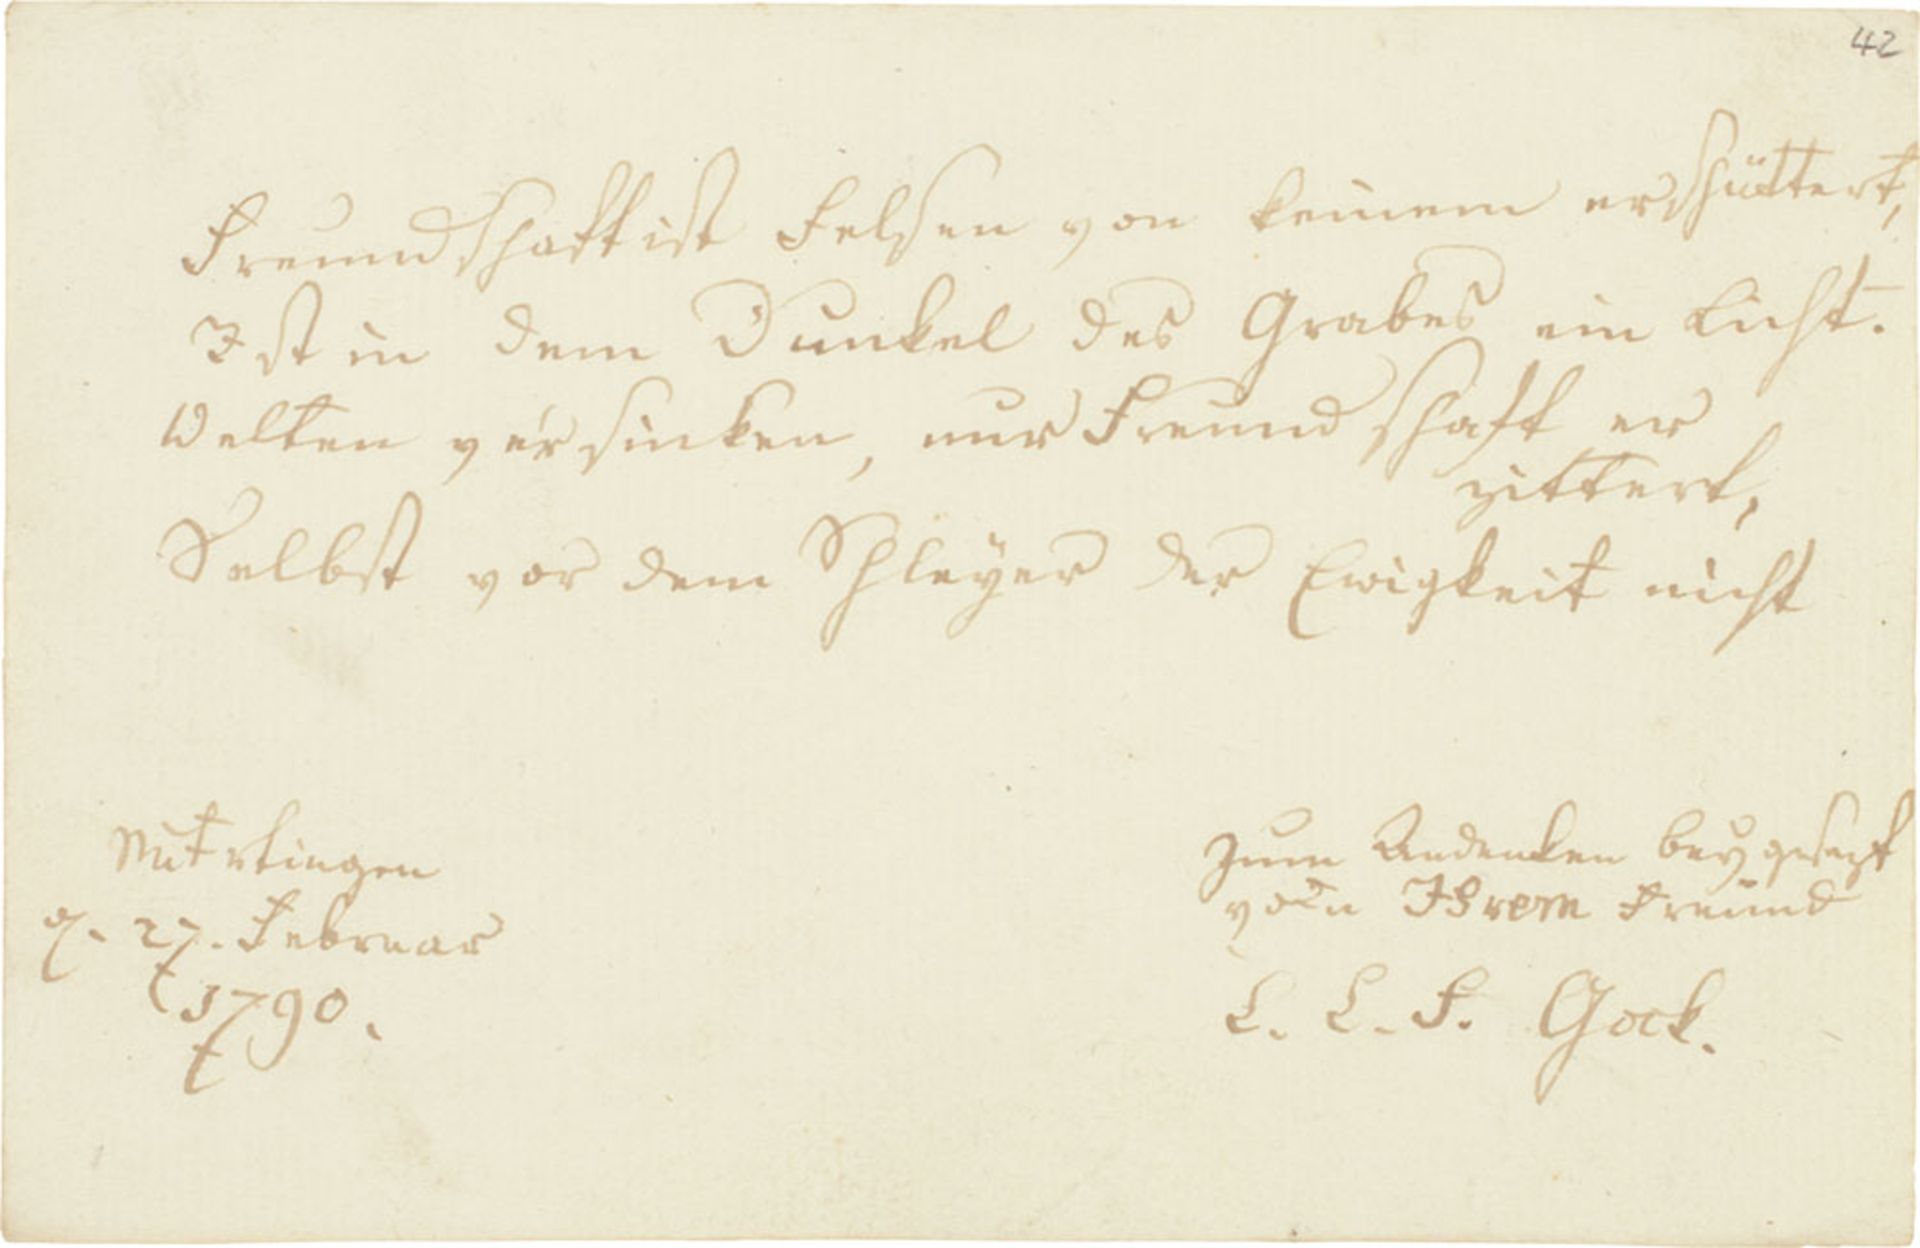 42
Freundschaft ist Felsen von keinem erschüttert,
Ist in dem Dunkel des Grabes ein Licht.
Welten versinken, nur Freundschaft er
zittert,
Selbst vor dem Schleÿer der Ewigkeit nicht
Nürtingen
d. 27. Februar
1790.
Zum Andenken beygesezt
von Ihrem Freund
C. C. F. Gock.